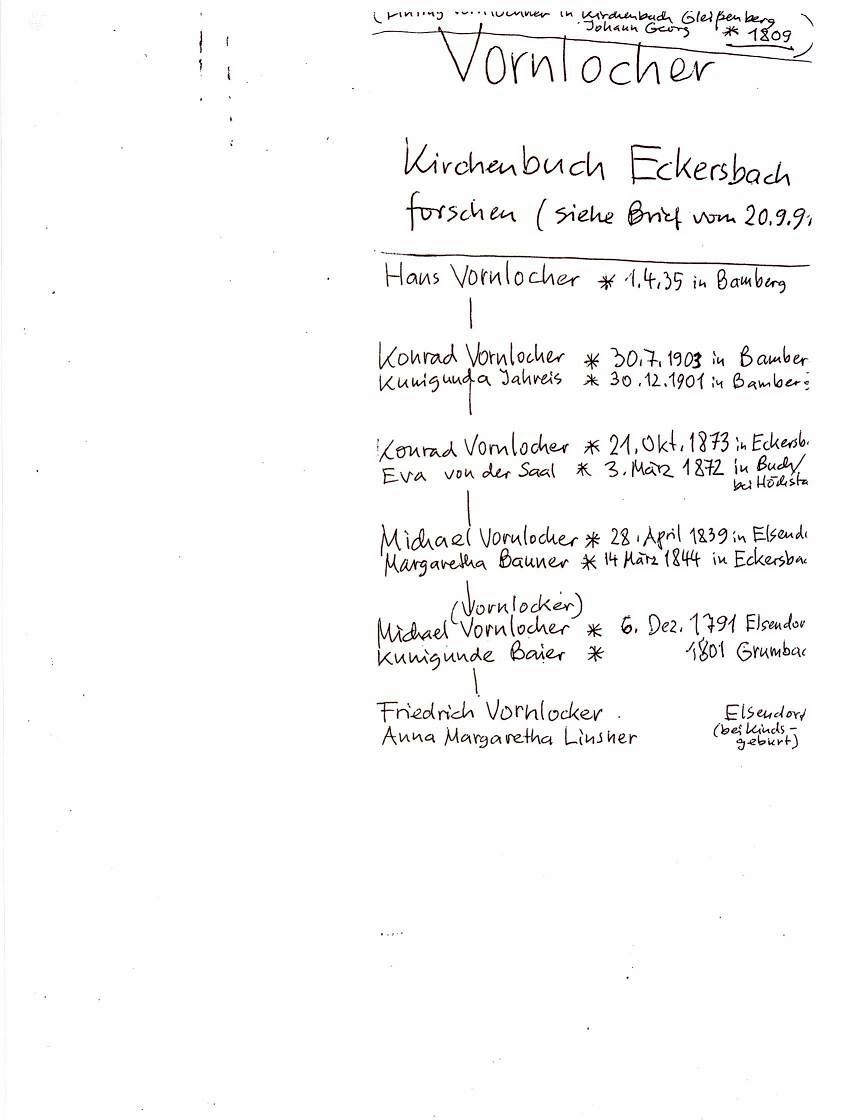 in Kirchenbuch Gleißenberg
Johann Georg * 1809
Vornlocher
Kirchenbuch Eckersbach
forschen (siehe Brief vom 20.9.9
Hans Vornlocher * 1.4.35 in Bamberg
Konrad Vornlocher * 30.7.1903 in Bamber
Kunigunda Jahreis * 30.12.1901 in Bamberg
Konrad Vornlocher * 21. Okt. 1873 in Eckersb
Eva von der Saal * 3. März 1872 in Buch
bei Höchsta
Michael Vornlocher * 28. April 1839 in Elsend
Margaretha Bauner * 14 März 1844 in Eckersbac
(Vornlocker)
Michael Vornlocher * 6. Dez. 1791 Elsendor
Kunigunde Baier * 1801 Grumbac
Friedrich Vornlocker. Elsendorf
Anna Margaretha Linsner (bei Kinds-
geburt)